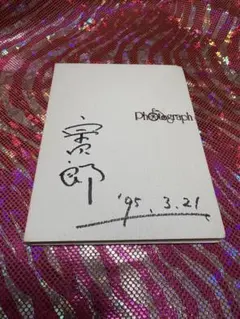 Photograph
郎
'95. 3.21